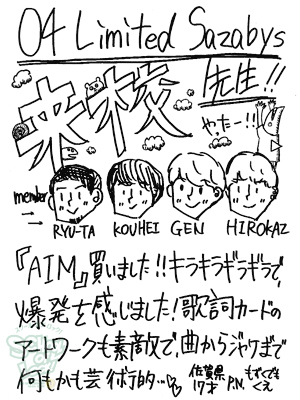 04 Limited Sazabys
来校
先生!!
やったー!!
member
RYU-TA KOUHEI GEN HIROKAZ
『AIM』買いました!!キラキラギラギラで、
爆発を感じました!歌詞カードの
アートワークも素敵で、曲からジャケまで
何もかも芸術的…♡
佐賀県
17才 P.N. もずくでも
くえ